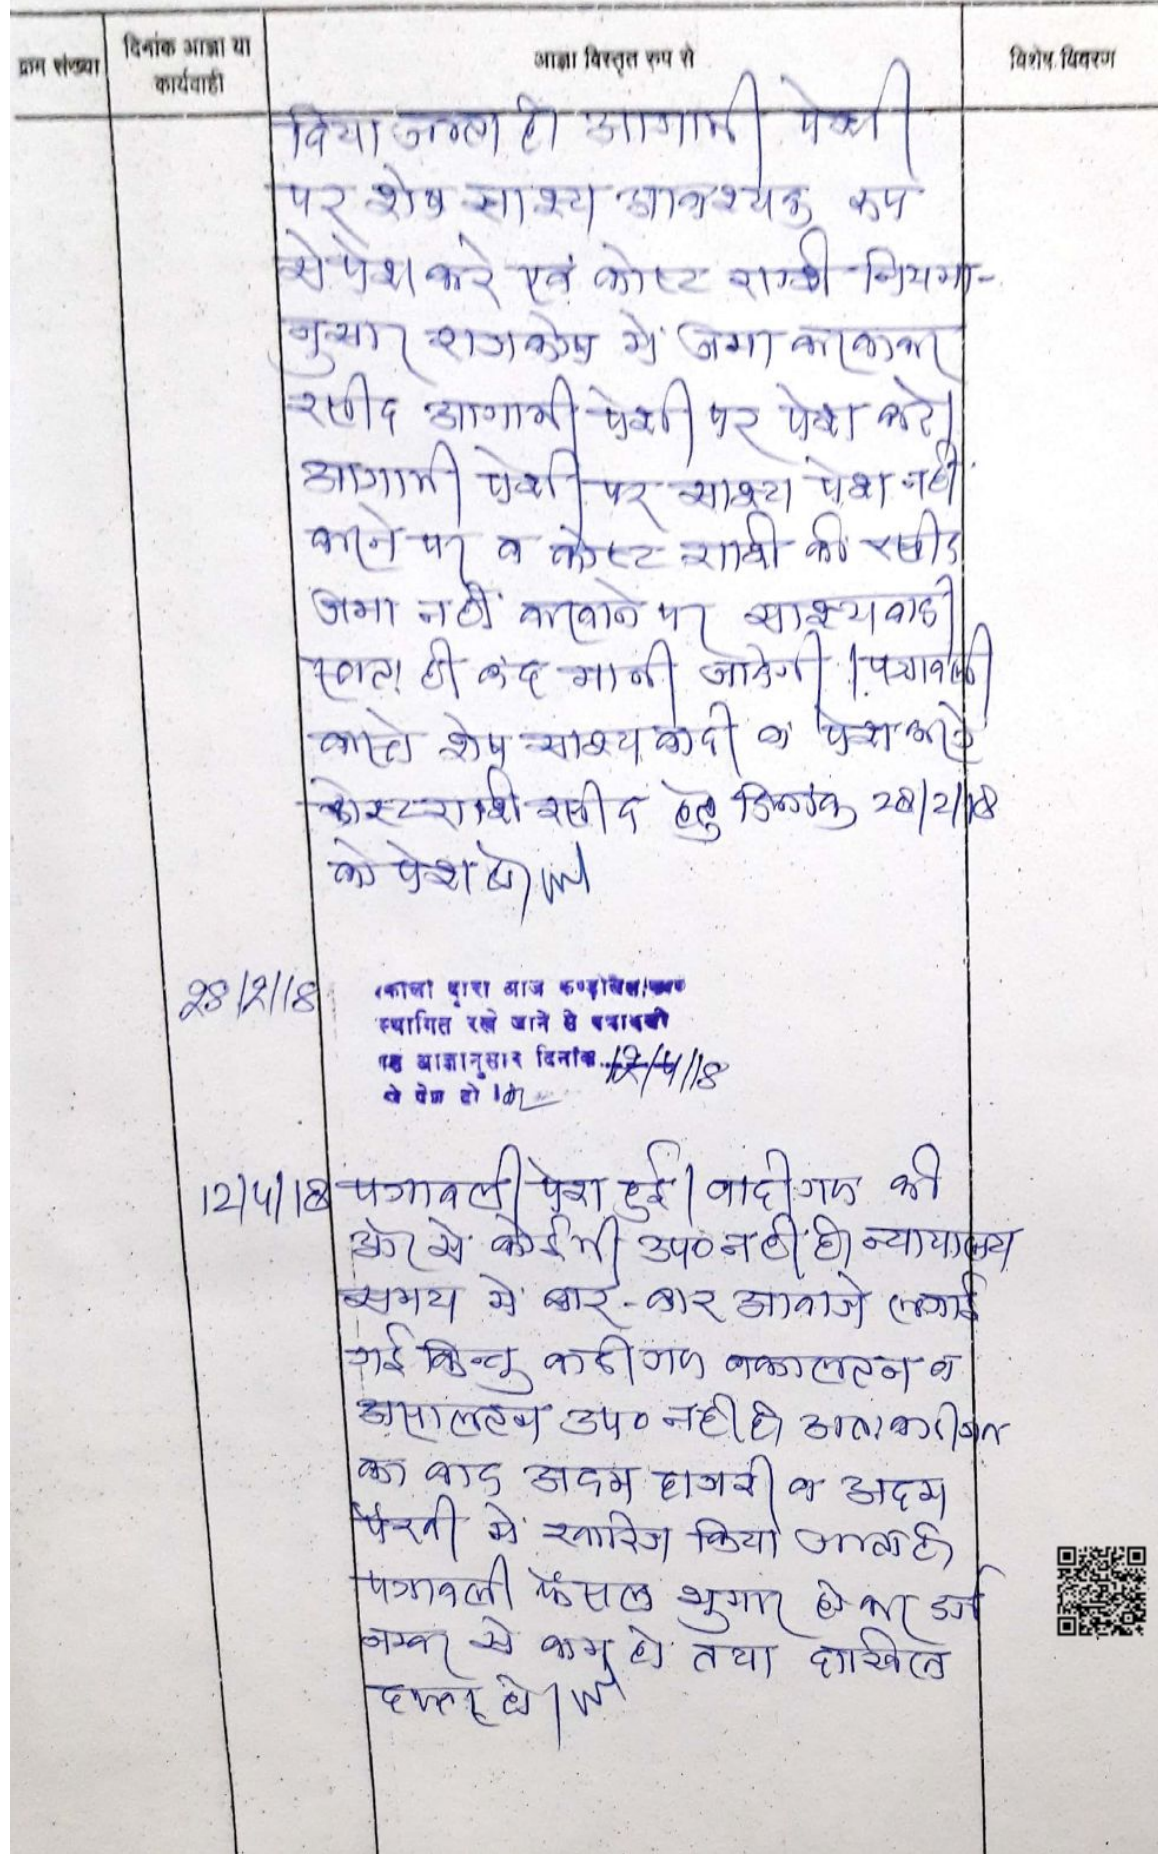 क्रम संख्या
दिनांक आज्ञा या
कार्यवाही
आज्ञा विस्तृत रुप से
विशेष विवरण
किया जाता है। आगामी पेशी
पर शेष साक्ष्य आवश्यक रूप
से पेश करे एवं कोस्ट राशी नियमा-
नुसार राजकोष में जमा करवाकर
रसीद आगामी पेशी पर पेश करे।
आगामी पेशी पर साक्ष्य पेश नहीं
करने पर व कोस्ट राशी की रसीद
जमा नहीं करवाने पर साक्ष्य वादी
स्वतः ही बंद मानी जावेगी। पत्रावली
वास्ते शेष साक्ष्य वादी व पेश करने
कोस्ट राशी रसीद हेतु दिनांक 28/2/18
को पेश हो।
28/2/18
द्वारा आज
स्थगित रखे जाने से पत्रावली
आज्ञानुसार दिनांक 12/4/18
को पेश हो।
12/4/18 पत्रावली पेश हुई। वादीगण की
ओर से कोई भी उप० नहीं है। न्यायालय
समय में बार-बार आवाजे लगाई
गई किन्तु वादीगण वकालतन व
असालतन उप० नहीं है। अतः वादीगण
का वाद अदम हाजरी व अदम
पैरवी में खारिज किया जाता है।
पत्रावली फैसल शुमार होकर दर्ज
नम्बर से कम हो तथा दाखिल
दफ्तर हो।